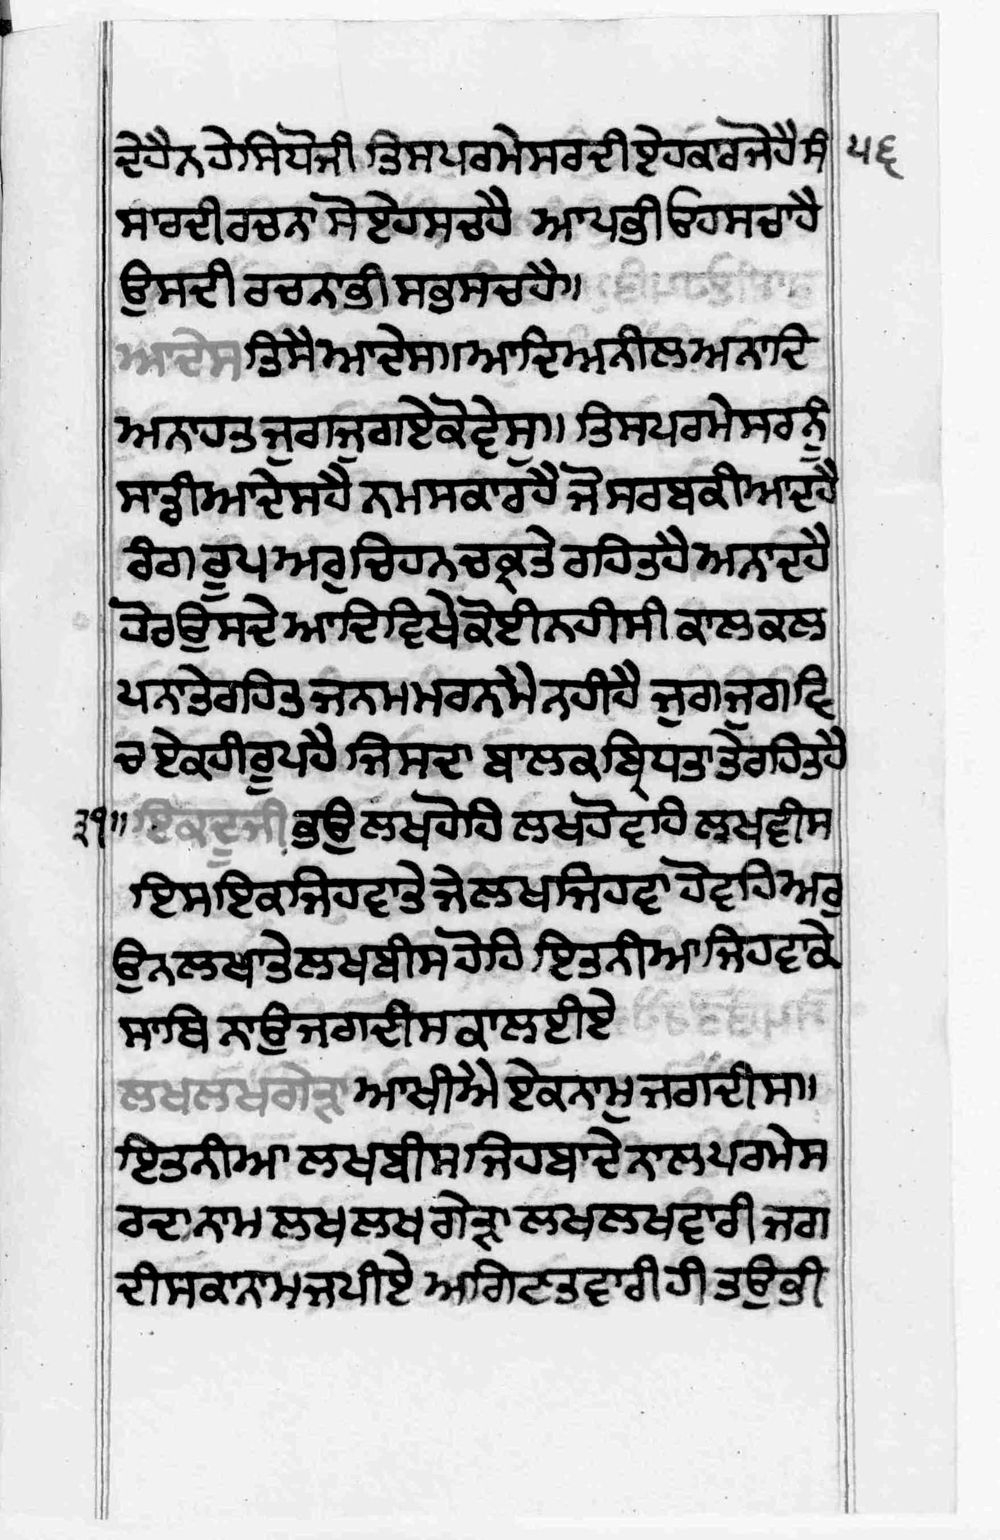 ਦੇਹੈਨ ਹੇ ਸਿਧੋ ਜੀ ਤਿਸ ਪਰਮੇਸਰ ਦੀ ਏਹ ਕਾਰ ਜੋ ਹੈ ਸੰ ੫੬
ਸਾਰ ਦੀ ਰਚਨਾ ਸੋ ਏਹ ਸਚ ਹੈ ਆਪ ਭੀ ਓਹ ਸਚਾ ਹੈ
ਉਸ ਦੀ ਰਚਨਾ ਭੀ ਸਭੁ ਸਚ ਹੈ॥
ਆਦੇਸ ਤਿਸੈ ਆਦੇਸ॥ ਆਦਿ ਅਨੀਲ ਅਨਾਦਿ
ਅਨਾਹਤ ਜੁਗ ਜੁਗ ਏਕੋ ਵੇਸੁ॥ ਤਿਸ ਪਰਮੇਸਰ ਨੂੰ
ਸਾਡੀ ਆਦੇਸ ਹੈ ਨਮਸਕਾਰ ਹੈ ਜੋ ਸਰਬ ਕੀ ਆਦ ਹੈ
ਰੰਗ ਰੂਪ ਅਰੁ ਚਿਹਨ ਚਕ੍ਰ ਤੇ ਰਹਿਤ ਹੈ ਅਨਾਦ ਹੈ
ਹੋਰ ਉਸਦੇ ਆਦਿ ਵਿਖੇ ਕੋਈ ਨਹੀ ਸੀ ਕਾਲ ਕਲ
ਪਨਾ ਤੇ ਰਹਿਤ ਜਨਮ ਮਰਨ ਮੈ ਨਹੀ ਹੈ ਜੁਗ ਜੁਗ ਵਿ
ਚ ਏਕ ਹੀ ਰੂਪ ਹੈ ਜਿਸਦਾ ਬਾਲਕ ਬ੍ਰਿਧਤਾ ਤੇ ਰਹਿਤ ਹੈ
੩੧॥ ਇਕਦੂ ਜੀ ਭਉ ਲਖ ਹੋਹਿ ਲਖ ਹੋਵਹਿ ਲਖ ਵੀਸ
ਇਸ ਇਕ ਜਿਹਵਾ ਤੇ ਜੇ ਲਖ ਜਿਹਵਾ ਹੋਵਹਿ ਅਰੁ
ਉਨ ਲਖਾ ਤੇ ਲਖ ਬੀਸ ਹੋਹਿ ਇਤਨੀਆ ਜਿਹਵਾ ਕੇ
ਸਾਥਿ ਨਾਉ ਜਗਦੀਸ ਕਾ ਲਈਏ
ਲਖ ਲਖ ਗੇੜਾ ਆਖੀਐ ਏਕ ਨਾਮੁ ਜਗਦੀਸ॥
ਇਤਨੀਆ ਲਖ ਬੀਸ ਜਿਹਬਾ ਦੇ ਨਾਲ ਪਰਮੇਸ
ਰ ਦਾ ਨਾਮ ਲਖ ਲਖ ਗੇੜਾ ਲਖ ਲਖ ਵਾਰੀ ਜਗ
ਦੀਸ ਕਾ ਨਾਮ ਜਪੀਏ ਅਗਿਣਤ ਵਾਰੀ ਹੀ ਤਉ ਭੀ